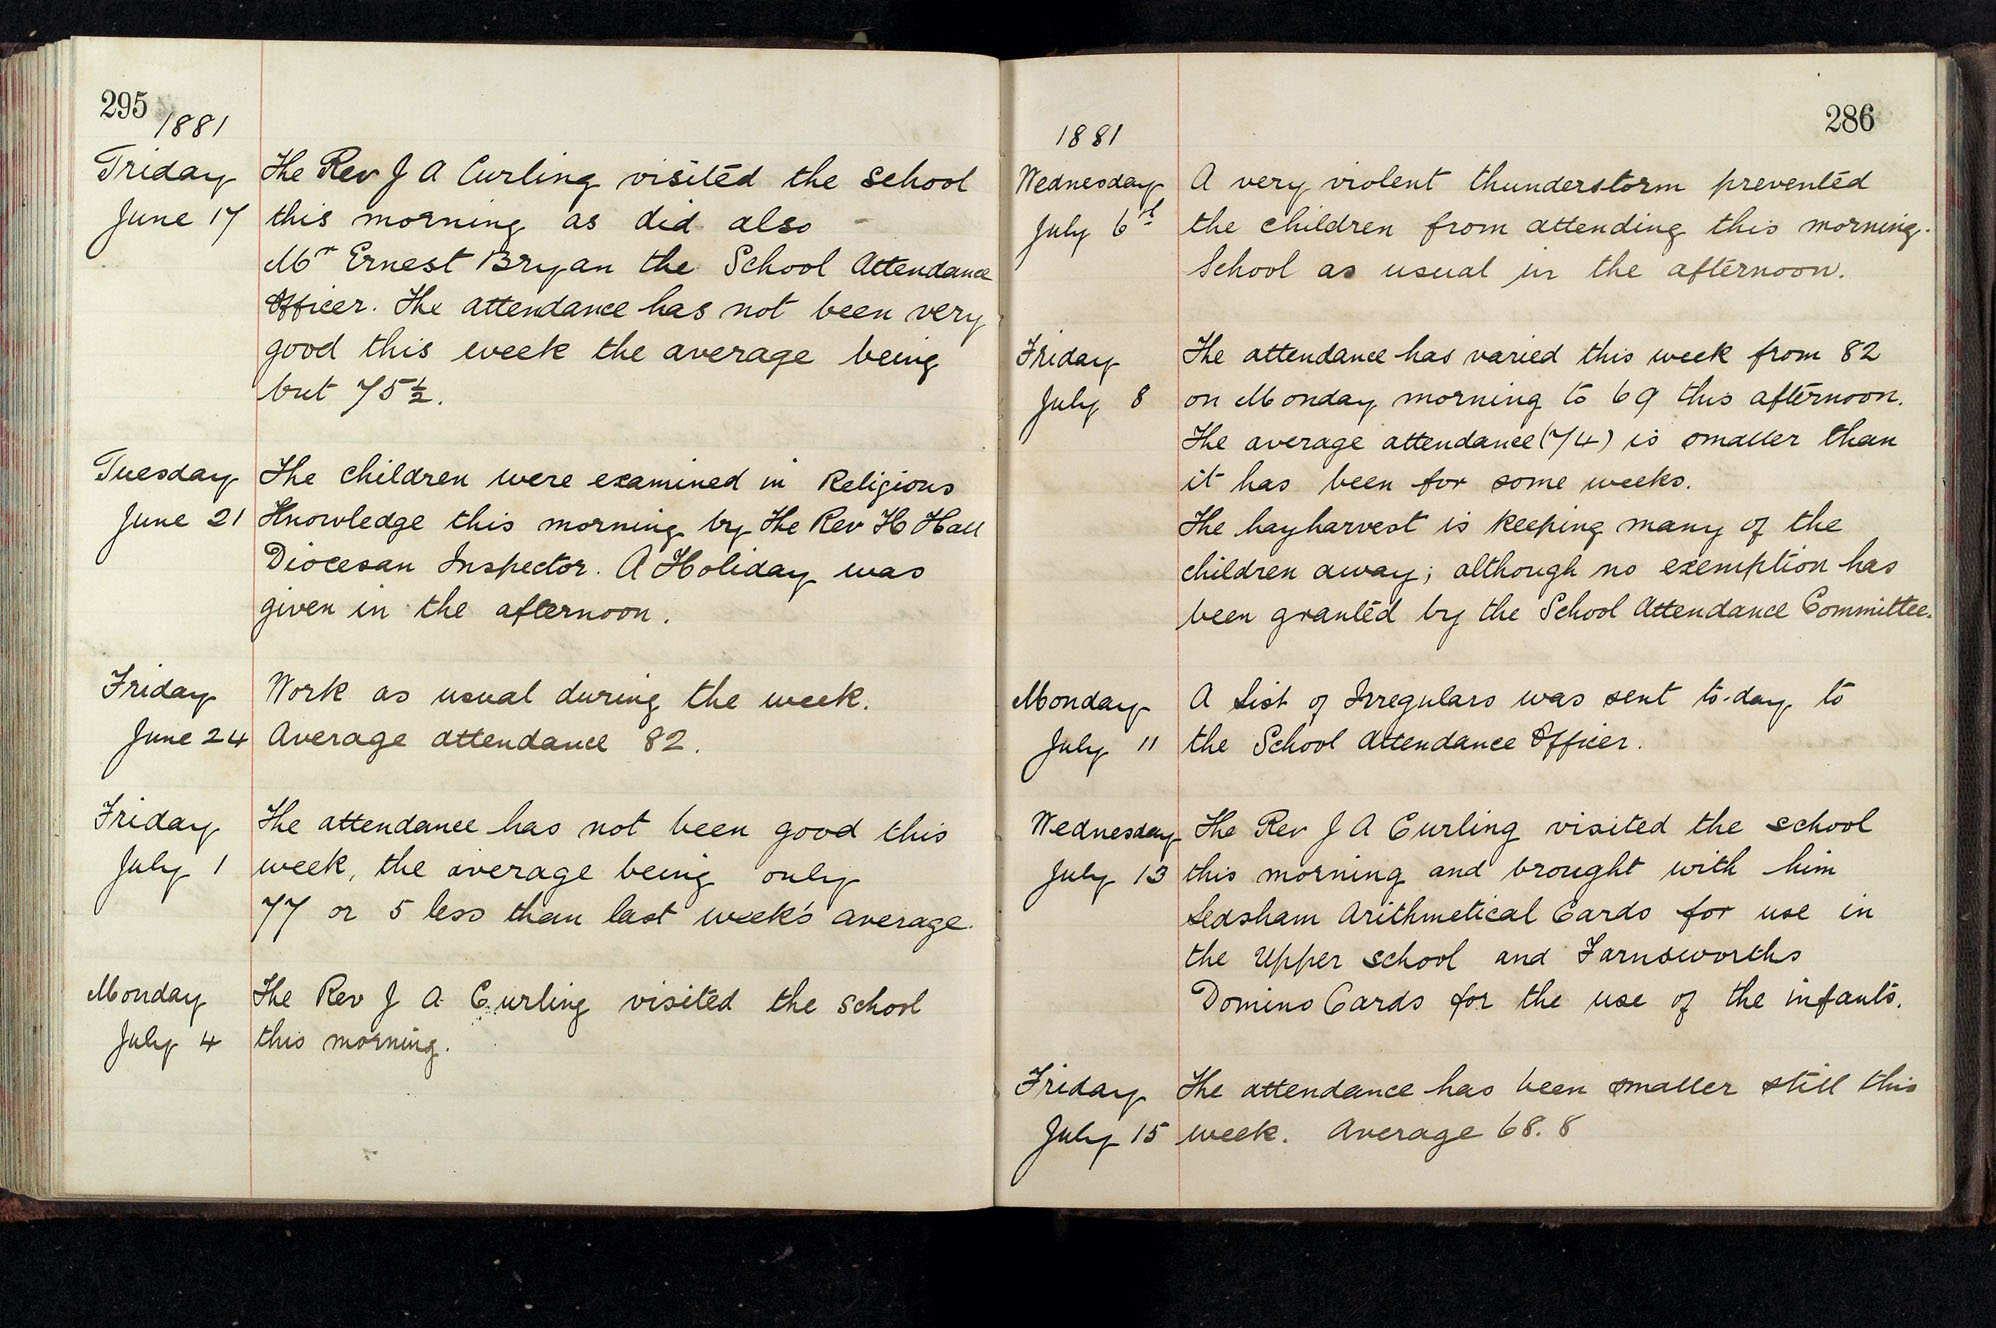 295
1881
Friday
June 17
The Rev J A Curling visited the school
this morning as did also
Mr Ernest Bryan the School Attendance
Officer. The attendance has not been very
good this week the average being
but 75½.
Tuesday
June 21
The children were examined in Religious
Knowledge this morning by The Rev H Hall
Diocesan Inspector. A Holiday was
given in the afternoon.
Friday
June 24
Work as usual during the week.
Average attendance 82.
Friday
July 1
The attendance has not been good this
week, the average being only
77 or 5 less than last week's average.
Monday
July 4
The Rev J A Curling visited the school
this morning.
286
1881
Wednesday
July 6th
A very violent thunderstorm prevented
the children from attending this morning.
School as usual in the afternoon.
Friday
July 8
The attendance has varied this week from 82
on Monday morning to 69 this afternoon.
The average attendance (74) is smaller than
it has been for some weeks.
The hayharvest is keeping many of the
children away; although no exemption has
been granted by the School Attendance Committee.
Monday
July 11
A List of Irregulars was sent to-day to
the School Attendance Officer.
Wednesday
July 13
The Rev J A Curling visited the school
this morning and brought with him
Ledsham Arithmetical Cards for use in
the Upper school and Farnsworths
Domino Cards for the use of the infants.
Friday
July 15
The attendance has been smaller still this
week. Average 68.8